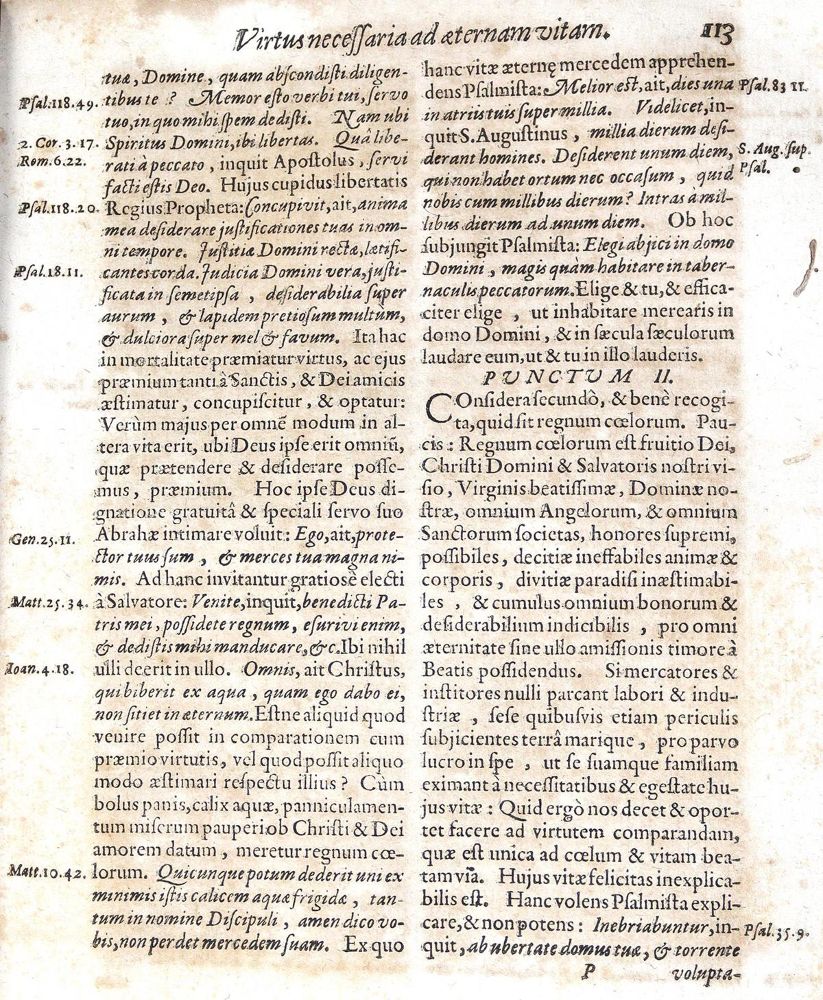 Virtus necessaria ad æternam vitam. 113
tuæ, Domine, quam abscondisti diligen-
Psal. 118. 49. tibus te ? Memor esto verbi tui, servo
tuo, in quo mihi spem dedisti. Nam ubi
2. Cor. 3. 17. Spiritus Domini, ibi libertas. Quâ libe-
Rom. 6. 22. rati à peccato, inquit Apostolus, servi
facti estis Deo. Hujus cupidus libertatis
Psal. 118. 20. Regius Propheta: Concupivit, ait, anima
mea desiderare justificationes tuas in om-
ni tempore. Justitiæ Domini rectæ, lætifi-
Psal. 18. 11. cantes corda. Judicia Domini vera, justi-
ficata in semetipsa, desiderabilia super
aurum, & lapidem pretiosum multùm,
& dulciora super mel & favum. Ita hac
in mortalitate præmiatur virtus, ac ejus
præmium tanti à Sanctis, & Dei amicis
æstimatur, concupiscitur, & optatur:
Verùm majus per omnē modum in al-
tera vita erit, ubi Deus ipse erit omniū,
quæ prætendere & desiderare posse-
mus, præmium. Hoc ipse Deus di-
gnatione gratuitâ & speciali servo suo
Gen. 25. 11. Abrahæ intimare voluit: Ego, ait, prote-
ctor tuus sum, & merces tua magna ni-
mis. Ad hanc invitantur gratiosè electi
Matt. 25. 34. à Salvatore: Venite, inquit, benedicti Pa-
tris mei, possidete regnum, esurivi enim,
& dedistis mihi manducare, &c. Ibi nihil
Ioan. 4. 18. ulli deerit in ullo. Omnis, ait Christus,
qui biberit ex aqua, quam ego dabo ei,
non sitiet in æternum. Estne aliquid quod
venire possit in comparationem cum
præmio virtutis, vel quod possit aliquo
modo æstimari respectu illius? Cùm
bolus panis, calix aquæ, panniculamen-
tum miserum pauperi ob Christi & Dei
amorem datum, meretur regnum cœ-
Matt. 10. 42. lorum. Quicunque potum dederit uni ex
minimis istis calicem aquæ frigidæ, tan-
tum in nomine Discipuli, amen dico vo-
bis, non perdet mercedem suam. Ex quo
hanc vitæ æternę mercedem apprehen-
dens Psalmista: Melior est, ait, dies una Psal. 83 11.
in atriis tuis super millia. Videlicet, in-
quit S. Augustinus, millia dierum desi-
derant homines. Desiderent unum diem, S. Aug. sup.
qui non habet ortum nec occasum, quid Psal.
nobis cum millibus dierum? Intras à mil-
libus dierum ad unum diem. Ob hoc
subjungit Psalmista: Elegi abjici in domo
Domini, magis quàm habitare in taber-
naculus peccatorum. Elige & tu, & effica-
citer elige, ut inhabitare merearis in
domo Domini, & in sæcula sæculorum
laudare eum, ut & tu in illo lauderis.
PUNCTUM II.
COnsidera secundò, & benè recogi-
ta, quid sit regnum cœlorum. Pau-
cis: Regnum cœlorum est fruitio Dei,
Christi Domini & Salvatoris nostri vi-
sio, Virginis beatissimæ, Dominæ no-
stræ, omnium Angelorum, & omnium
Sanctorum societas, honores supremi,
possibiles, decitiæ ineffabiles animæ &
corporis, divitiæ paradisi inæstimabi-
les, & cumulus omnium bonorum &
desiderabilium indicibilis, pro omni
æternitate sine ullo amissionis timore à
Beatis possidendus. Si mercatores &
institores nulli parcant labori & indu-
striæ, sese quibusvis etiam periculis
subjicientes terrâ marique, pro parvo
lucro in spe, ut se suamque familiam
eximant à necessitatibus & egestate hu-
jus vitæ: Quid ergò nos decet & opor-
tet facere ad virtutem comparandam,
quæ est unica ad cœlum & vitam bea-
tam via. Hujus vitæ felicitas inexplica-
bilis est. Hanc volens Psalmista expli-
care, & non potens: Inebriabuntur, in- Psal. 35. 9.
quit, ab ubertate domus tuæ, & torrente
P volupta-